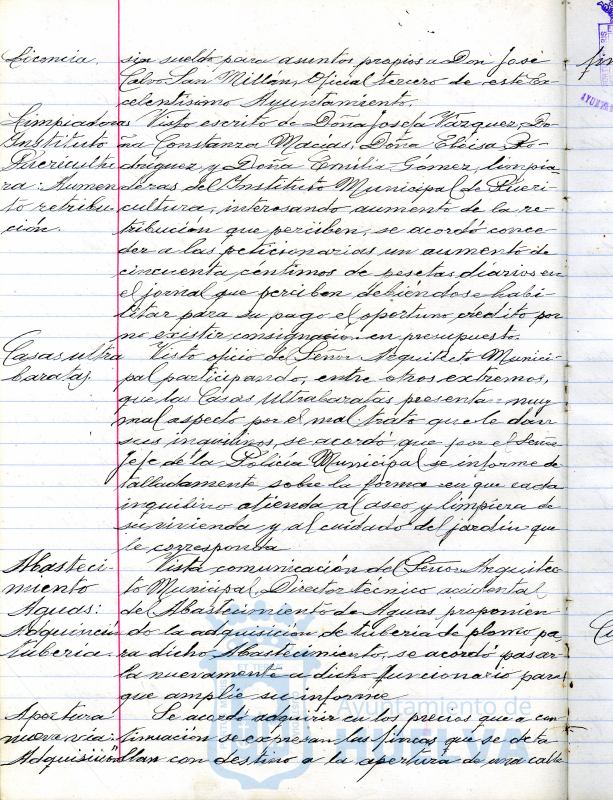 Licencia. sin sueldo para asuntos propios a Don José
Calvo San Millán, Oficial tercero de este Ex-
celentísimo Ayuntamiento.
Limpiadoras Visto escrito de Doña Josefa Vázquez, Do-
Instituto ña Constanza Macías, Doña Eloisa Ro-
Puericultu dríguez y Doña Emilia Gómez, limpia
ra: Aumen deras del Instituto Municipal de Pueri-
to retribu cultura, interesando aumento de la re-
ción. tribución que perciben, se acordó conce-
der a las peticionarias un aumento de
cincuenta céntimos de pesetas diarios en
el jornal que perciben debiéndose habi-
litar para su pago el oportuno crédito por
no existir consignación en presupuesto.
Casas ultra Visto oficio del Señor Arquitecto Munici-
baratas. pal participando, entre otros extremos,
que las Casas Ultrabaratas presentan muy
mal aspecto por el mal trato que le dan
sus inquilinos, se acordó que por el Señor
Jefe de la Policía Municipal se informe de
talladamente sobre la forma en que cada
inquilino atienda al aseo y limpieza de
su vivienda y al cuidado del jardín que
le corresponda.
Abasteci- Vista comunicación del Señor Arquitec-
miento to Municipal Director técnico accidental
Aguas: del Abastecimiento de Aguas proponien-
Adquisición do la adquisición de tubería de plomo pa-
tubería. ra dicho Abastecimiento, se acordó pasar
la nuevamente a dicho funcionario para
que amplíe su informe.
Apertura Se acordó adquirir en los precios que a con-
nueva vía: tinuación se expresan las fincas que se deta
Adquisición llan con destino a la apertura de una calle
Ayuntamiento de
HUELVA